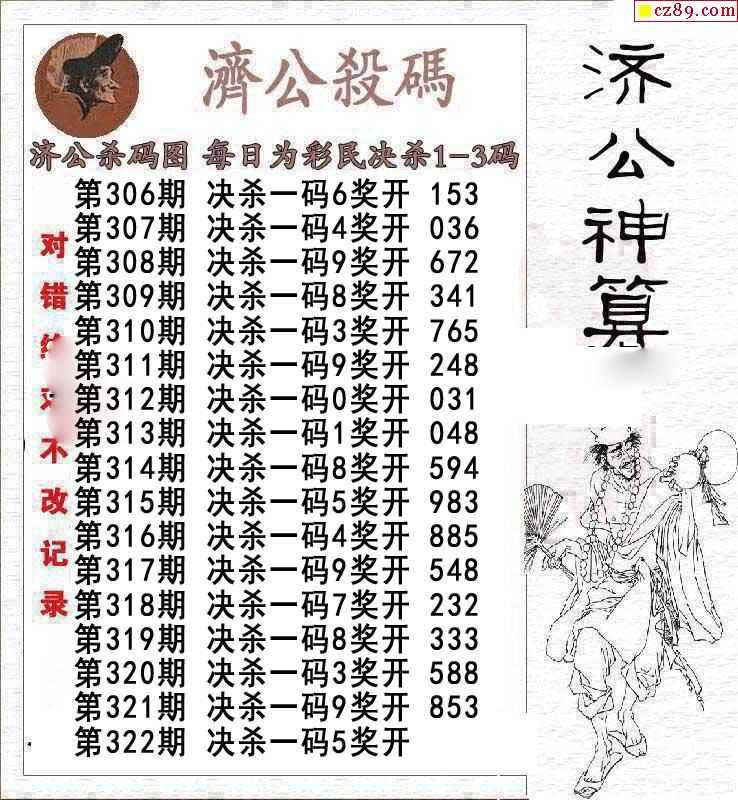 cz89.com
濟公殺碼
济公杀码图 每日为彩民决杀1-3码
第306期 决杀一码6奖开 153
第307期 决杀一码4奖开 036
第308期 决杀一码9奖开 672
第309期 决杀一码8奖开 341
第310期 决杀一码3奖开 765
第311期 决杀一码9奖开 248
第312期 决杀一码0奖开 031
第313期 决杀一码1奖开 048
第314期 决杀一码8奖开 594
第315期 决杀一码5奖开 983
第316期 决杀一码4奖开 885
第317期 决杀一码9奖开 548
第318期 决杀一码7奖开 232
第319期 决杀一码8奖开 333
第320期 决杀一码3奖开 588
第321期 决杀一码9奖开 853
第322期 决杀一码5奖开
对错
不改记录
济公神算